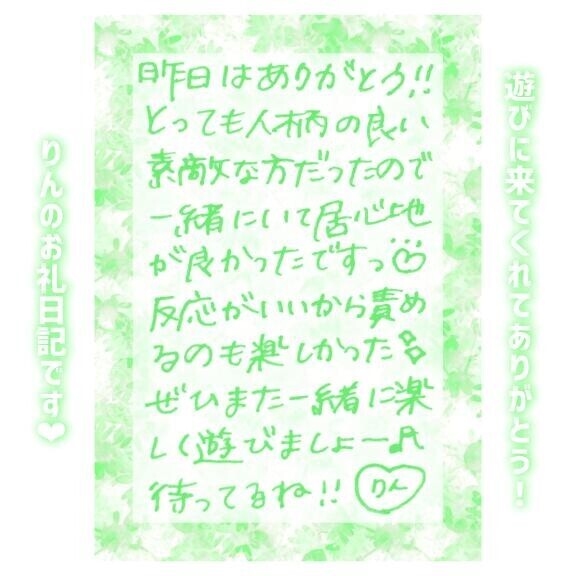 遊びに来てくれてありがとう!
昨日はありがとう!!
とっても人柄の良い
素敵な方だったので
一緒にいて居心地
が良かったですっ
反応がいいから責め
るのも楽しかった
ぜひまた一緒に楽
しく遊びましょー♪
待ってるね!! りん
りんのお礼日記です❤